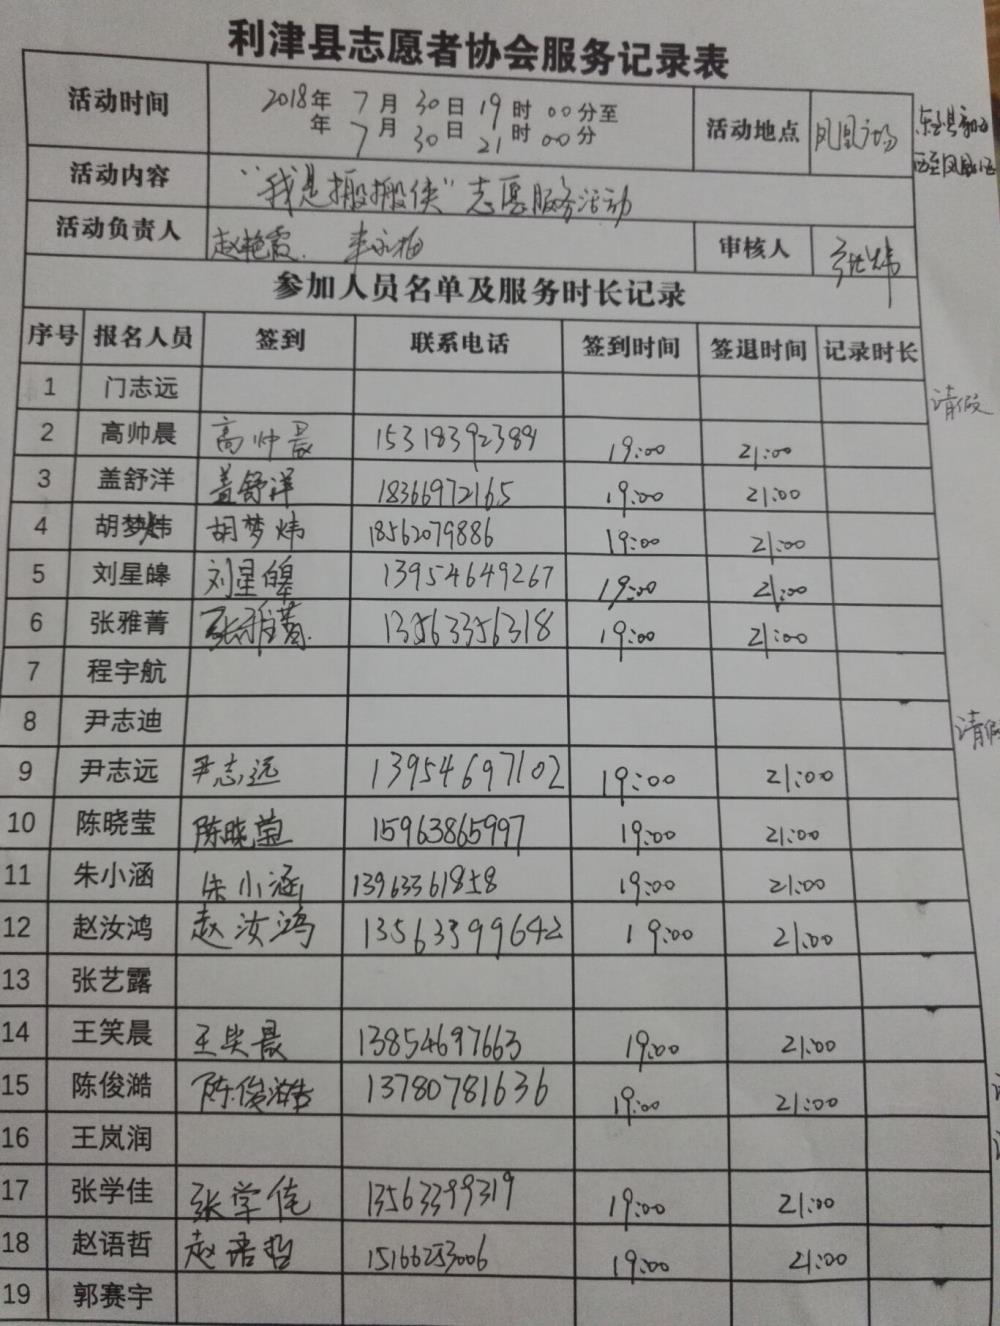 利津县志愿者协会服务记录表
活动时间 2018年 7月 30日 19时 00分至
年 7月 30日 21时 00分 活动地点 凤凰广场
活动内容 “我是搬搬侠”志愿服务活动
活动负责人 赵艳霞. 审核人
参加人员名单及服务时长记录
序号 报名人员 签到 联系电话 签到时间 签退时间 记录时长
1 门志远 请假
2 高帅晨 高帅晨 15318392384 19:00 21:00
3 盖舒洋 盖舒洋 18366972165 19:00 21:00
4 胡梦炜 胡梦炜 18562079886 19:00 21:00
5 刘星皞 刘星皞 13954649267 19:00 21:00
6 张雅菁 张雅菁. 13563356318 19:00 21:00
7 程宇航
8 尹志迪 请假
9 尹志远 尹志远 13954697102 19:00 21:00
10 陈晓莹 陈晓莹 15963865997 19:00 21:00
11 朱小涵 朱小涵 13963361858 19:00 21:00
12 赵汝鸿 赵汝鸿 13563399642 19:00 21:00
13 张艺露
14 王笑晨 王笑晨 13854697663 19:00 21:00
15 陈俊澔 陈俊澔 13780781636 19:00 21:00
16 王岚润
17 张学佳 张学佳 13563399319 19:00 21:00
18 赵语哲 赵语哲 15166253006 19:00 21:00
19 郭赛宇